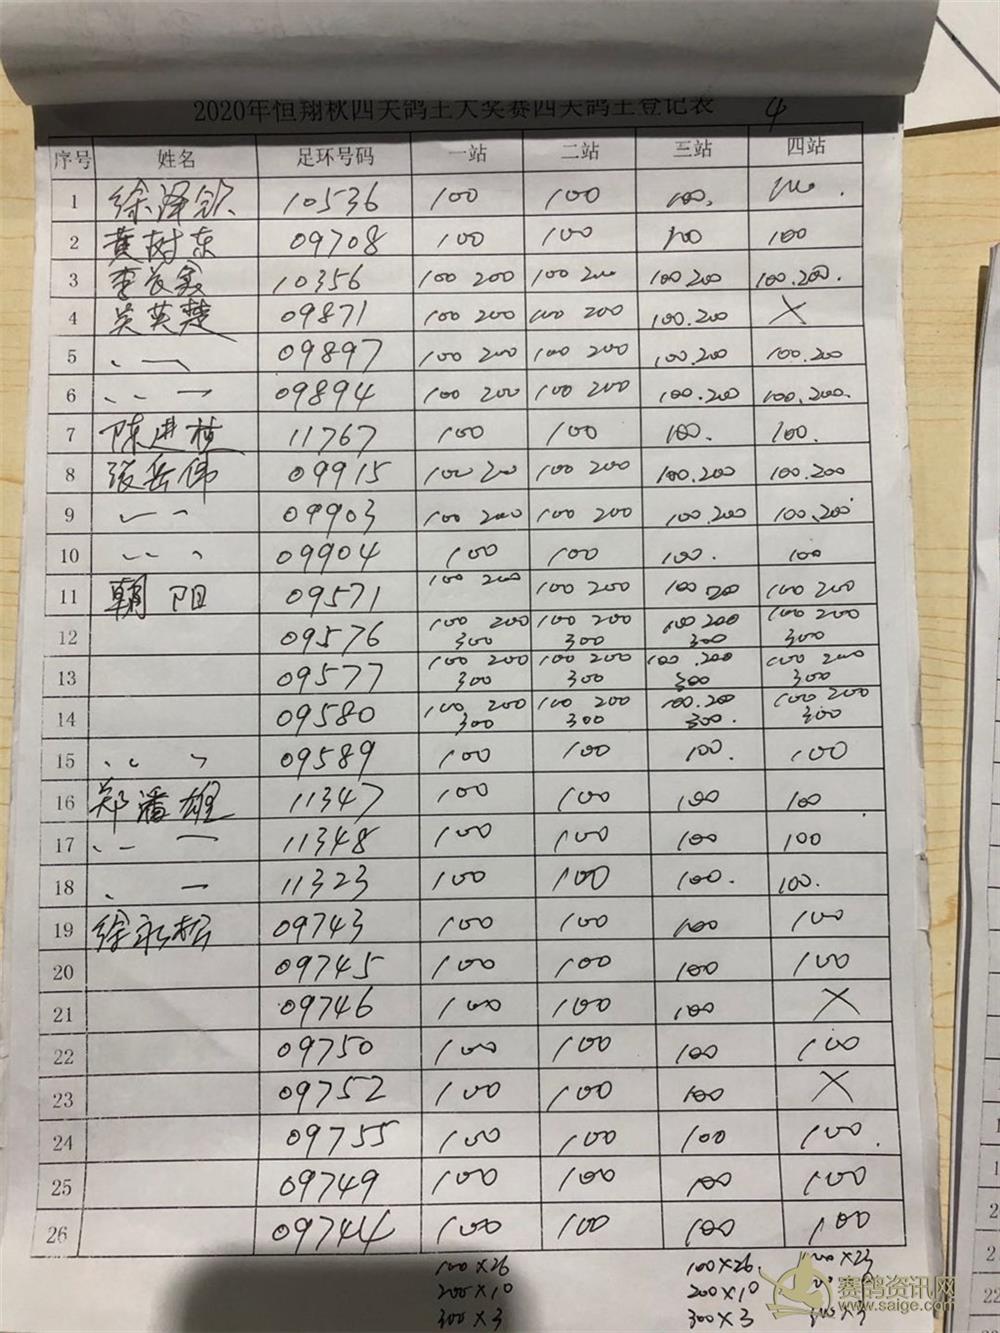 2020年恒翔秋四关鸽王大奖赛四关鸽王登记表 4
序号 姓名 足环号码 一站 二站 三站 四站
1 徐泽钦 10536 100 100 100. 100.
2 黄树东 09708 100 100 100 100
3 李 10356 100 200 100 200 100 200 100.200.
4 吴英楚 09871 100 200 100 200 100.200 ×
5 09897 100 200 100 200 100.200 100.200
6 09894 100 200 100 200 100.200 100.200.
7 陈进植 11767 100 100 100. 100.
8 张岳伟 09915 100 200 100 200 100.200 100.200
9 09903 100 200 100 200 100.200 100.200
10 09904 100 100 100. 100
11 朝阳 09571 100 200 100 200 100 200 100 200
12 09576 100 200 300 100 200 300 100 200 300 100 200 300
13 09577 100 200 300 100 200 300 100.200 300 100 200 300
14 09580 100 200 300 100 200 300 100.200 300. 100 200 300
15 09589 100 100 100. 100
16 郑潘雄 11347 100 100 100 100
17 11348 100 100 100 100
18 11323 100 100 100. 100.
19 徐永松 09743 100 100 100 100
20 09745 100 100 100 100
21 09746 100 100 100 ×
22 09750 100 100 100 100
23 09752 100 100 100 ×
24 09755 100 100 100 100.
25 09749 100 100 100 100
26 09744 100 100 100 100
100×26 100×26. 100×23
200×10 200×10
300×3 300×3 300×3
赛鸽资讯网
www.saige.com